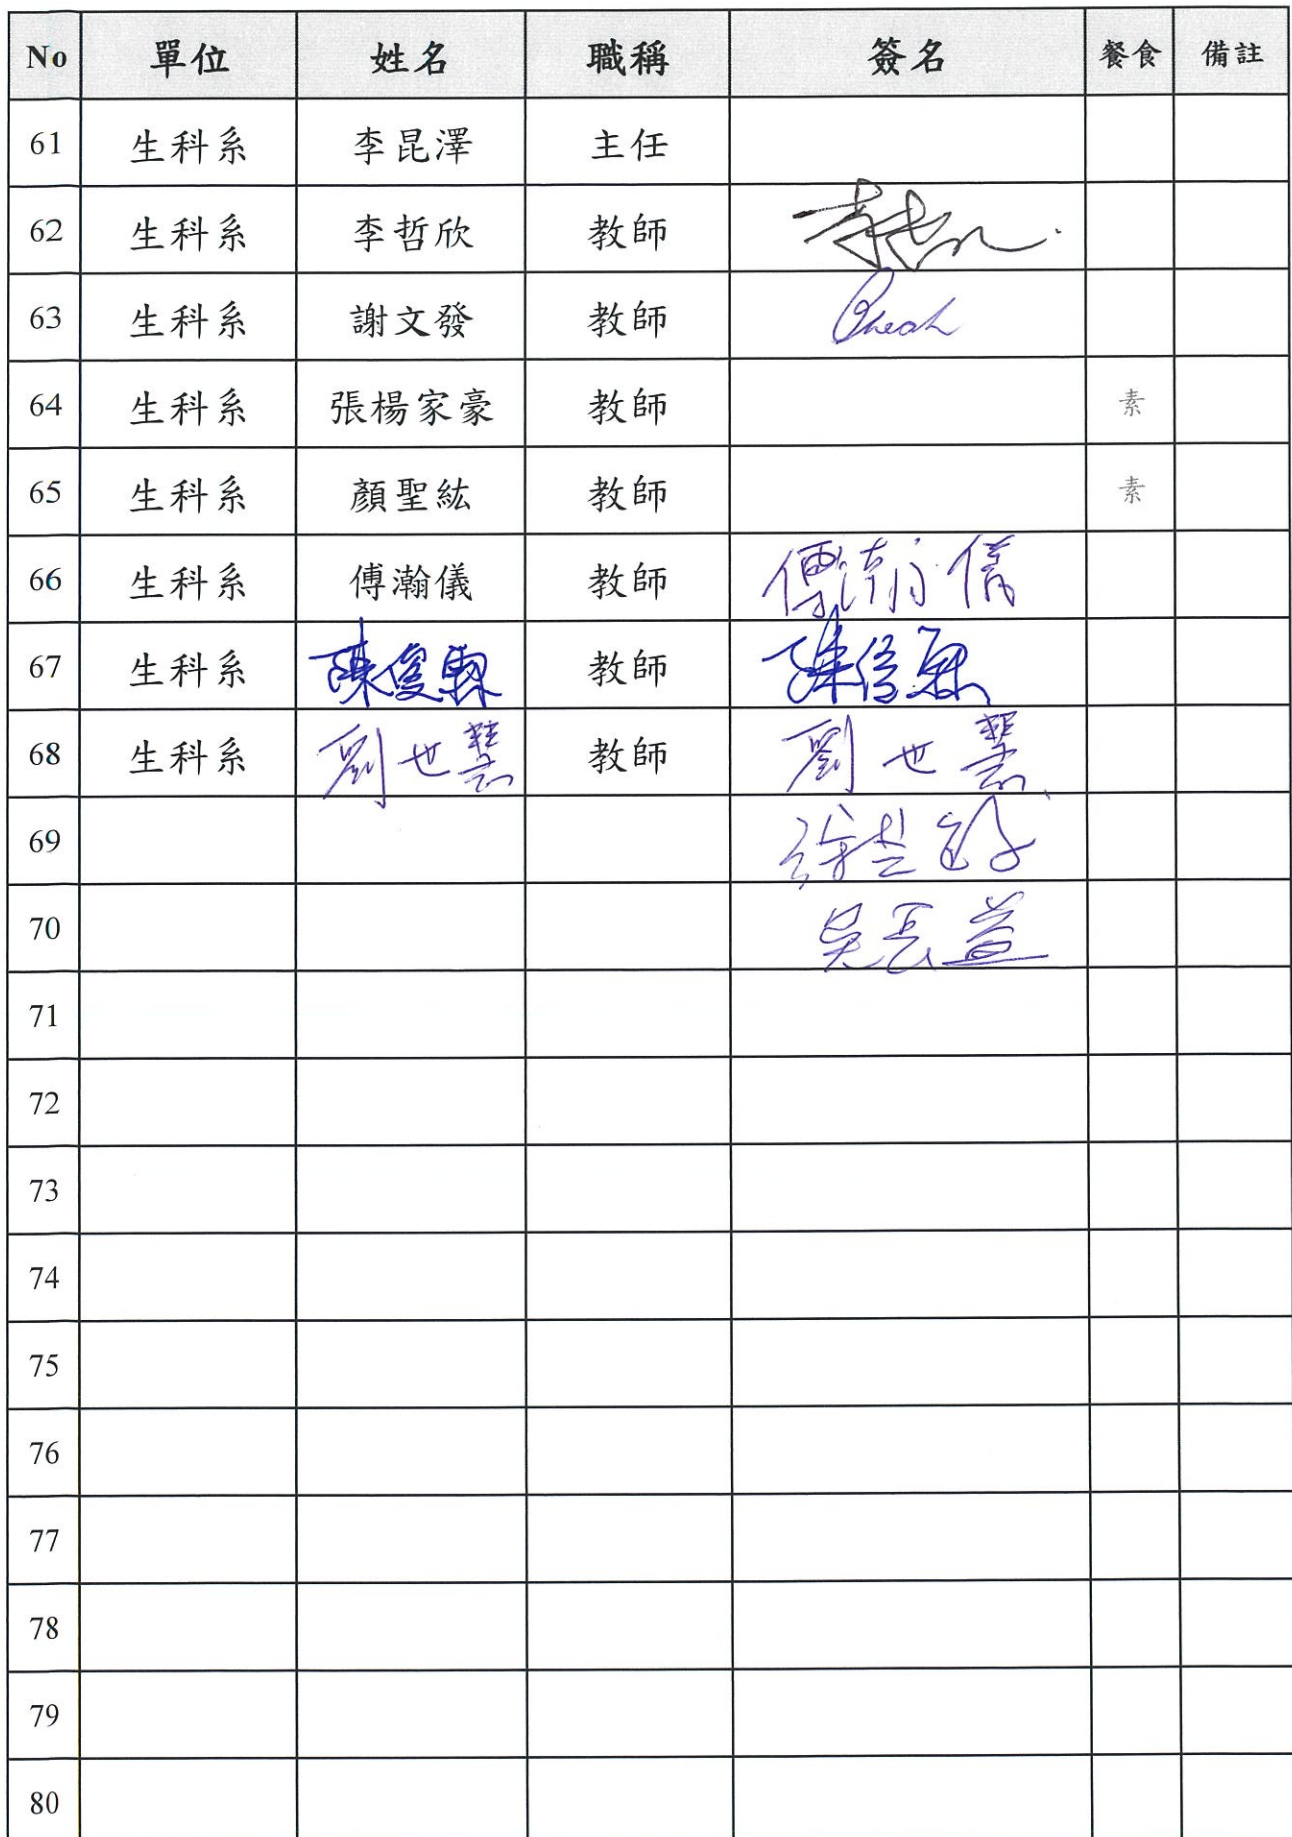 No 單位 姓名 職稱 簽名 餐食 備註
61 生科系 李昆澤 主任
62 生科系 李哲欣 教師
63 生科系 謝文發 教師 Cheah
64 生科系 張楊家豪 教師 素
65 生科系 顏聖紘 教師 素
66 生科系 傅瀚儀 教師 傅瀚儀
67 生科系 陳俊 教師 陳俊
68 生科系 劉世慧 教師 劉世慧
69
70 吳 益
71
72
73
74
75
76
77
78
79
80